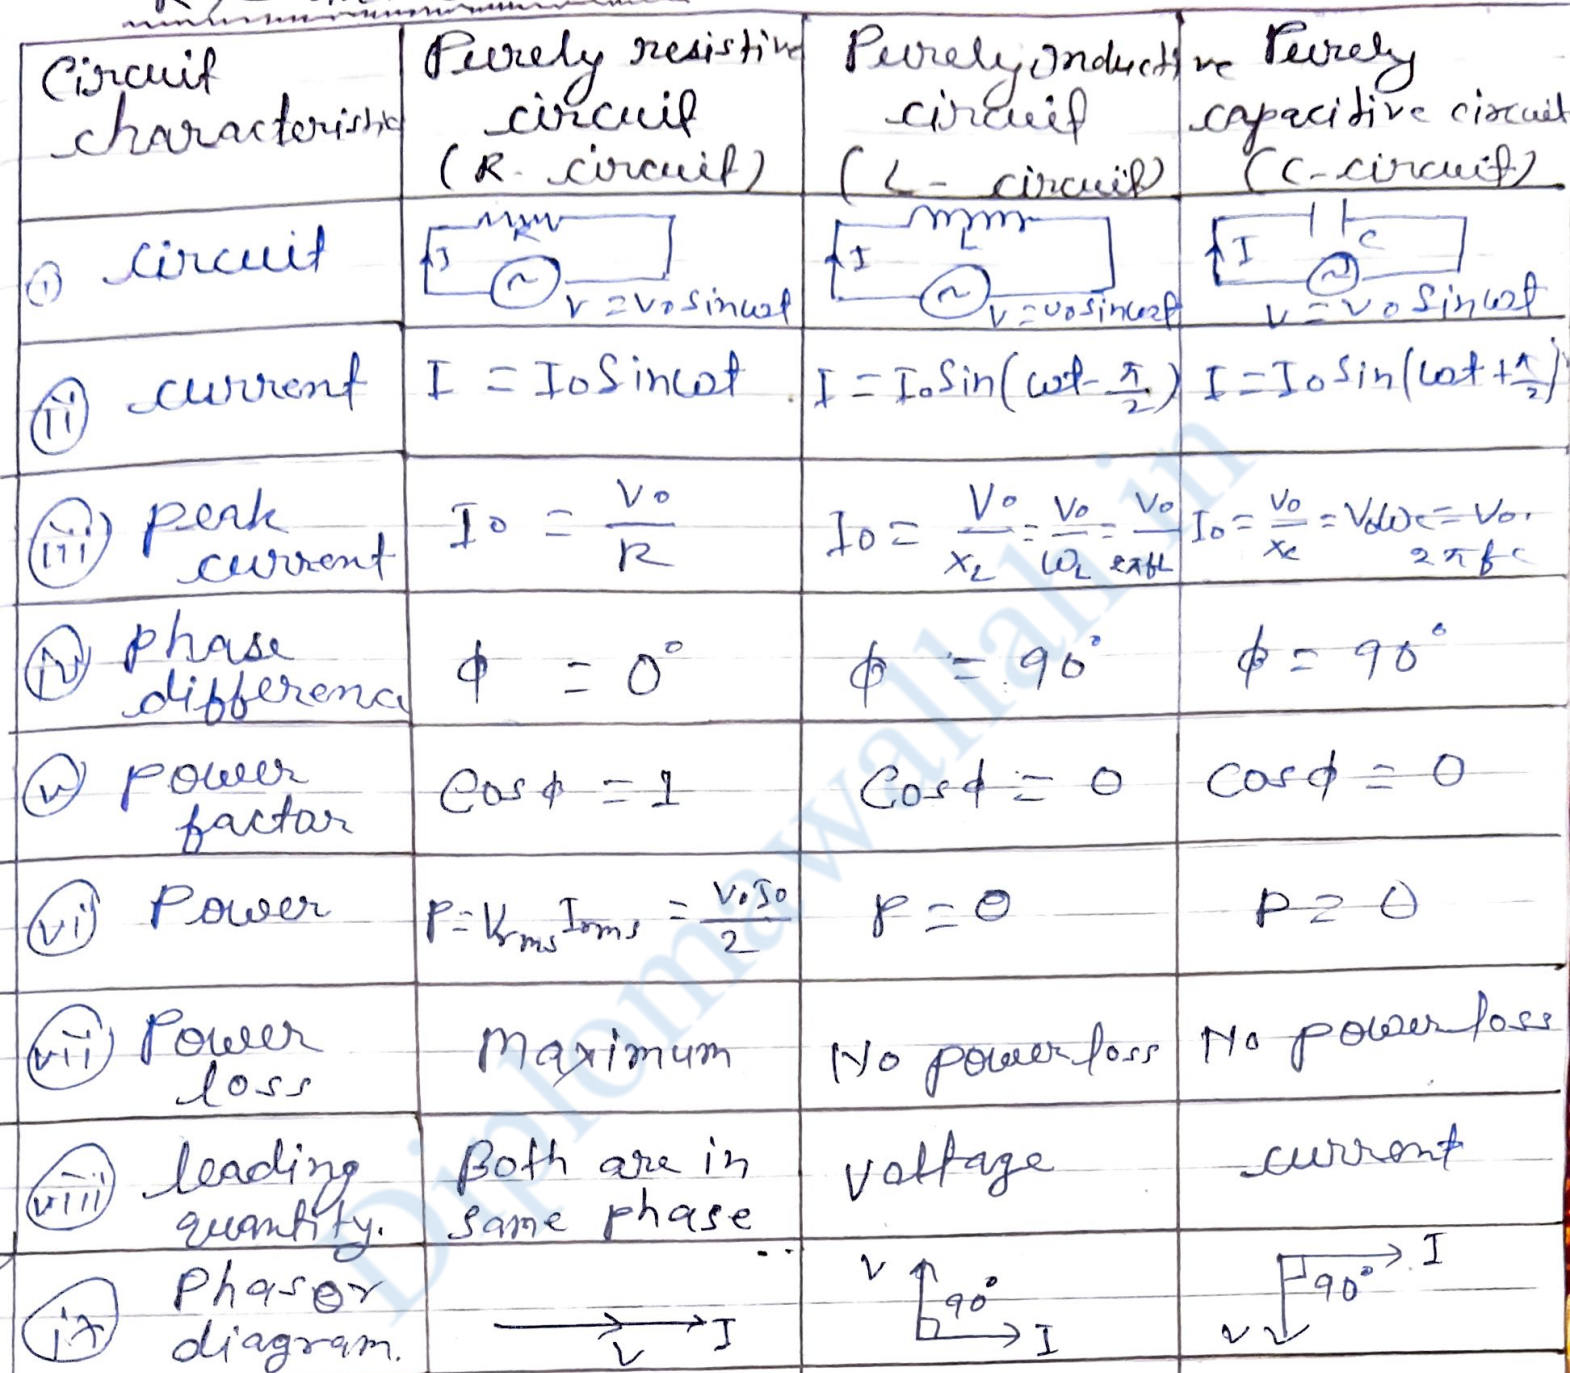 Circuit characteristic
Purely resistive circuit (R-circuit)
Purely inductive circuit (L-circuit)
Purely capacitive circuit (C-circuit)
(i) circuit
R
I
V = V₀ sinωt
L
I
V = V₀ sinωt
C
I
V = V₀ sinωt
(ii) current
I = I₀ Sinωt
I = I₀ Sin(ωt - π/2)
I = I₀ Sin(ωt + π/2)
(iii) peak current
I₀ = V₀/R
I₀ = V₀/X_L = V₀/ωL = V₀/2πfL
I₀ = V₀/Xc = V₀ωc = V₀.2πfc
(iv) phase difference
ϕ = 0°
ϕ = 90°
ϕ = 90°
(v) power factor
Cosϕ = 1
Cosϕ = 0
Cosϕ = 0
(vi) Power
P = Vrms Irms = V₀I₀/2
P = 0
P = 0
(vii) Power loss
Maximum
No power loss
No power loss
(viii) leading quantity.
Both are in same phase
voltage
current
(ix) Phasor diagram.
V I
V 90° I
90° I V
Diplomawallah.in